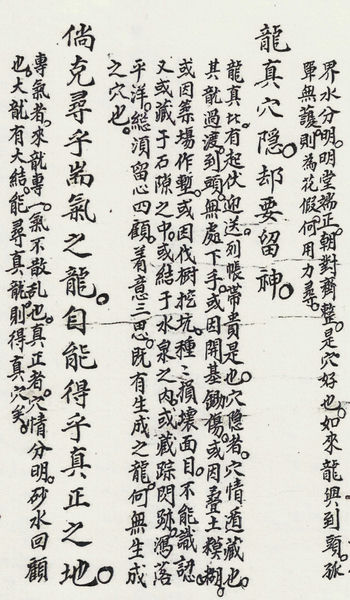 界水分明。明堂端正。朝對齊整。是穴好也。如來龍與到頭。孤
單無護。則為花假。何用力尋。
龍真穴隱。却要留神。
龍真。比有起伏迎送。列帳帶貴是也。穴隱者。穴情遁藏也。
其龍過渡。到頭無處下手。或因開基鋤傷。或因叠土模糊。
或因築場作塹。或因伐樹挖坑。種種損壞面目。不能識認。
又或藏于石隙之中。或結于水泉之内。或藏踪閃跡。瀉落
平洋。總須留心四顧。着意三思。既有生成之龍。何無生成
之穴也。
倘克尋乎耑氣之龍。自能得乎真正之地。
專氣者。來龍專一。氣不散乱也。真正者。穴情分明。砂水回顧
也。大龍有大結。能尋真龍。則得真穴矣。